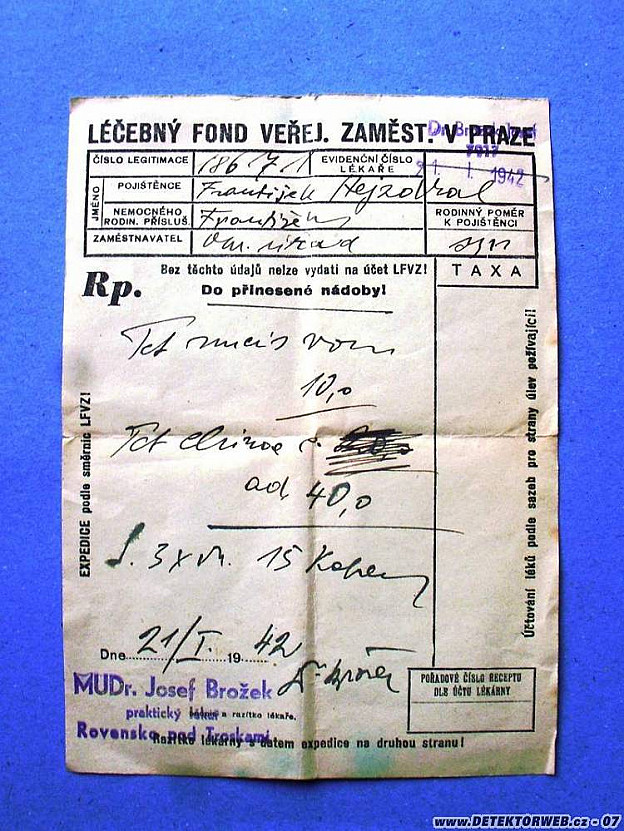 LÉČEBNÝ FOND VEŘEJ. ZAMĚST. V PRAZE
Dr. Brožek Josef
21. I. 1942
ČÍSLO LEGITIMACE 18671
EVIDENČNÍ ČÍSLO LÉKAŘE
JMÉNO
POJIŠTĚNCE František
NEMOCNÉHO RODIN. PŘÍSLUŠ.
RODINNÝ POMĚR K POJIŠTĚNCI
ZAMĚSTNAVATEL
syn
Bez těchto údajů nelze vydati na účet LFVZ!
TAXA
Rp.
Do přinesené nádoby!
Tct nucis vom
10,0
Tct chinae c.
ad 40,0
S. 3 x dn. 15 Kapek
EXPEDICE podle směrnic LFVZ!
Účtování léků podle sazeb pro strany úlev požívající!
Dne 21/I. 1942
Dr Brožek
POŘADOVÉ ČÍSLO RECEPTU
DLE ÚČTU LÉKÁRNY
MUDr. Josef Brožek
praktický lékař a razítko lékaře.
Rovensko pod Troskami
Razítko lékárny s datem expedice na druhou stranu!
www.DETEKTORWEB.cz - 07